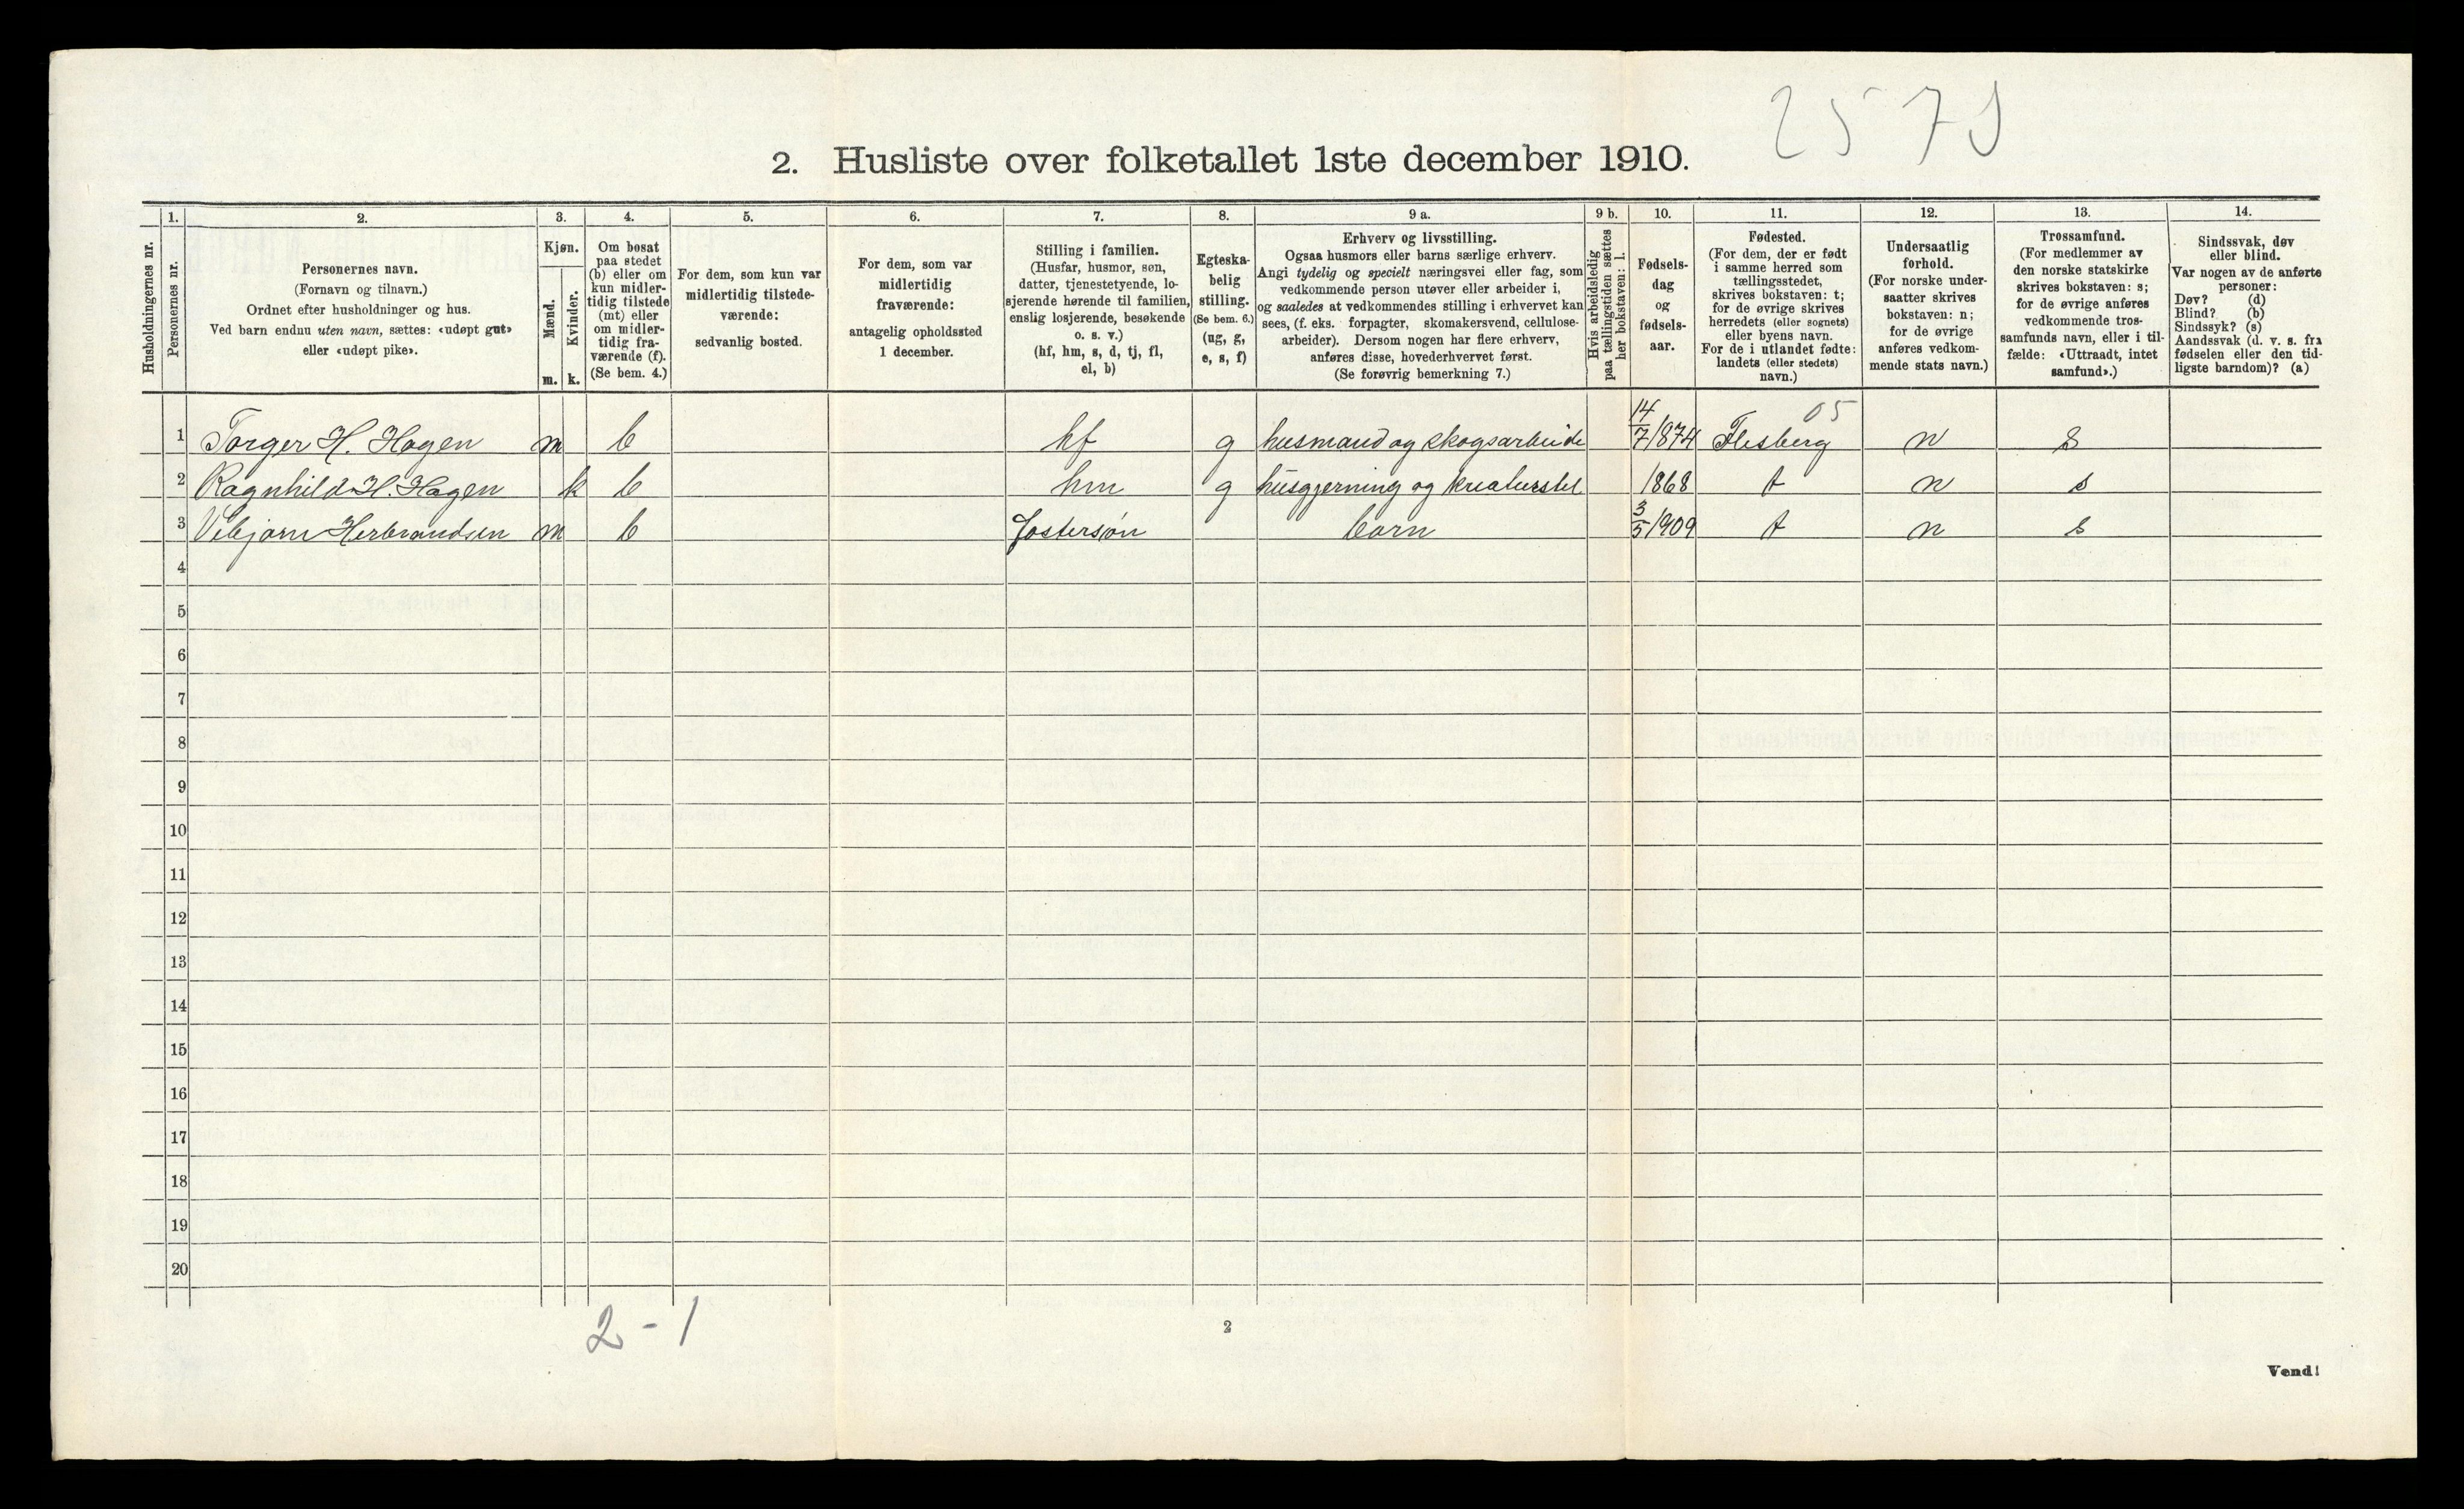 2575
2. Husliste over folketallet 1ste december 1910.
Husholdningernes nr.
1.
Personernes nr.
2.
Personernes navn.
(Fornavn og tilnavn.)
Ordnet efter husholdninger og hus.
Ved barn endnu uten navn, sættes: «udøpt gut»
eller «udøpt pike».
3.
Kjøn.
Mænd.
Kvinder.
m. k.
4.
Om bosat
paa stedet
(b) eller om
kun midler-
tidig tilstede
(mt) eller
om midler-
tidig fra-
værende (f).
(Se bem. 4.)
5.
For dem, som kun var
midlertidig tilstede-
værende:
sedvanlig bosted.
6.
For dem, som var
midlertidig
fraværende:
antagelig opholdssted
1 december.
7.
Stilling i familien.
(Husfar, husmor, søn,
datter, tjenestetyende, lo-
sjerende hørende til familien,
enslig losjerende, besøkende
o. s. v.)
(hf, hm, s, d, tj, fl,
el, b)
8.
Egteska-
belig
stilling.
(Se bem. 6.)
(ug, g,
e, s, f)
9 a.
Erhverv og livsstilling.
Ogsaa husmors eller barns særlige erhverv.
Angi tydelig og specielt næringsvei eller fag, som
vedkommende person utøver eller arbeider i,
og saaledes at vedkommendes stilling i erhvervet kan
sees, (f. eks. forpagter, skomakersvend, cellulose-
arbeider). Dersom nogen har flere erhverv,
anføres disse, hovederhvervet først.
(Se forøvrig bemerkning 7.)
9 b.
Hvis arbeidsledig
paa tællingstiden sættes
her bokstaven: l.
10.
Fødsels-
dag
og
fødsels-
aar.
11.
Fødested.
(For dem, der er født
i samme herred som
tællingsstedet,
skrives bokstaven: t;
for de øvrige skrives
herredets (eller sognets)
eller byens navn.
For de i utlandet fødte:
landets (eller stedets)
navn.)
12.
Undersaatlig
forhold.
(For norske under-
saatter skrives
bokstaven: n;
for de øvrige
anføres vedkom-
mende stats navn.)
13.
Trossamfund.
(For medlemmer av
den norske statskirke
skrives bokstaven: s;
for de øvrige anføres
vedkommende tros-
samfunds navn, eller i til-
fælde: «Uttraadt, intet
samfund».)
14.
Sindssvak, døv
eller blind.
Var nogen av de anførte
personer:
Døv? (d)
Blind? (b)
Sindssyk? (s)
Aandssvak (d. v. s. fra
fødselen eller den tid-
ligste barndom)? (a)
05
1 Torger H. Hagen m b hf g husmand og skogsarbeide 14/7 1874 Flesberg n s
2 Ragnhild H. Hagen k b hm g husgjerning og kreaturstel 1868 t n s
3 Vebjørn Herbrandsen m b fostersøn barn 3/5 1909 t n s
4
5
6
7
8
9
10
11
12
13
14
15
16
17
18
19
20
2 - 1
2
Vend!